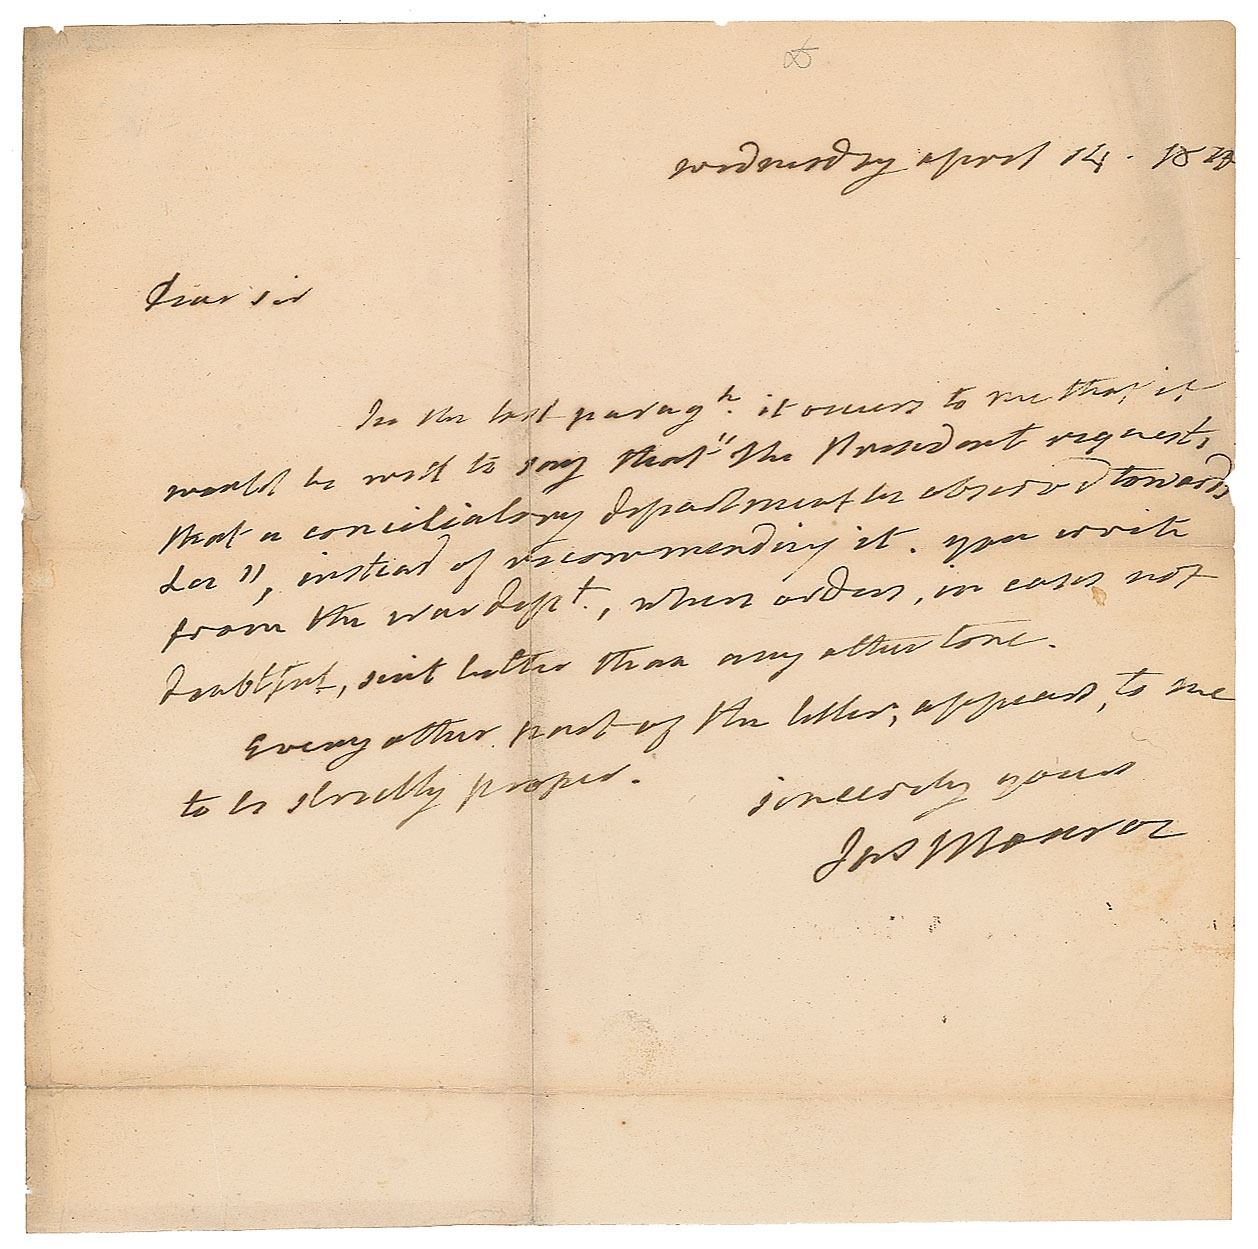 wednesday april 14. 1824
Dear sir
In the last paragh. it occurs to me that, it
would be well to say that "the President requests,
that a conciliatory deportment be observed towards
&ca", instead of recommending it. you write
from the war dept., where orders, in cases not
doubtful, suit better than any other tone.
Every other part of the letter, appears, to me
to be strictly proper.
sincerely yours
Jas Monroe